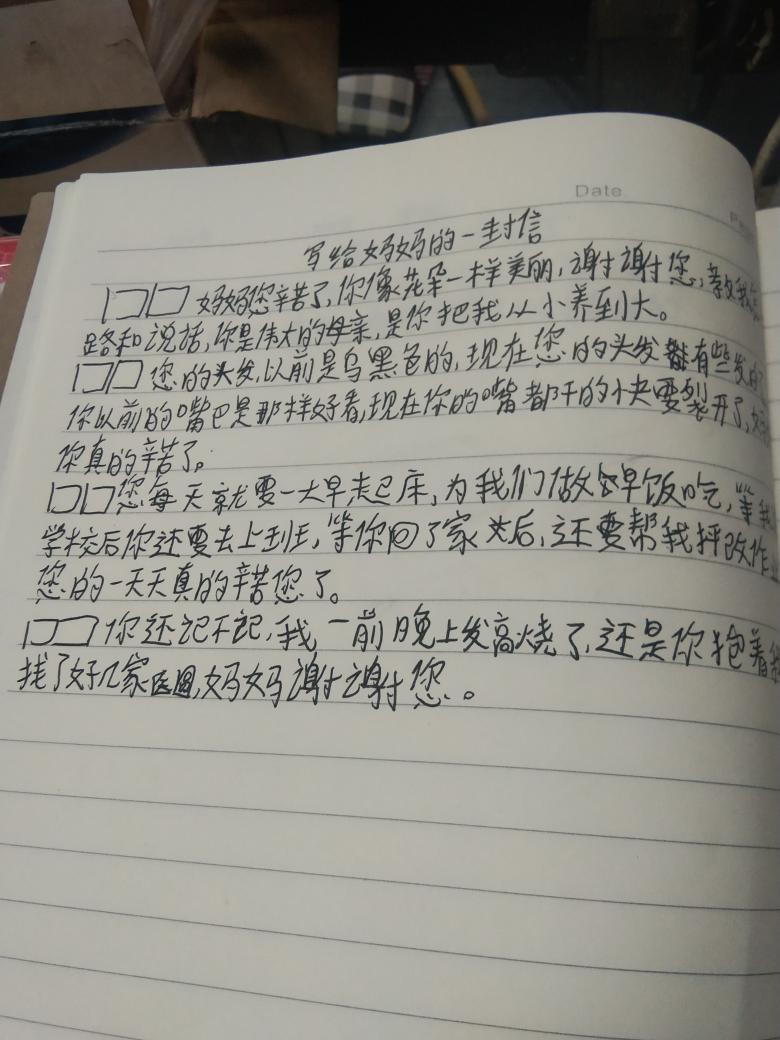 Date
写给妈妈的一封信
□□妈妈您辛苦了,你像花朵一样美丽,谢谢您,教我
路和说话,你是伟大的母亲,是你把我从小养到大。
□□您的头发,以前是乌黑色的,现在您的头发都有些发白
你以前的嘴巴是那样好看,现在你的嘴都干的快要裂开了,妈
你真的辛苦了。
□□您每天就要一大早起床,为我们做早饭吃,等我
学校后你还要去上班,等你回了家以后,还要帮我批改作业
您的一天天真的辛苦您了。
□□你还记不记,我一前晚上发高烧了,还是你抱着我
找了好几家医,妈妈谢谢您。